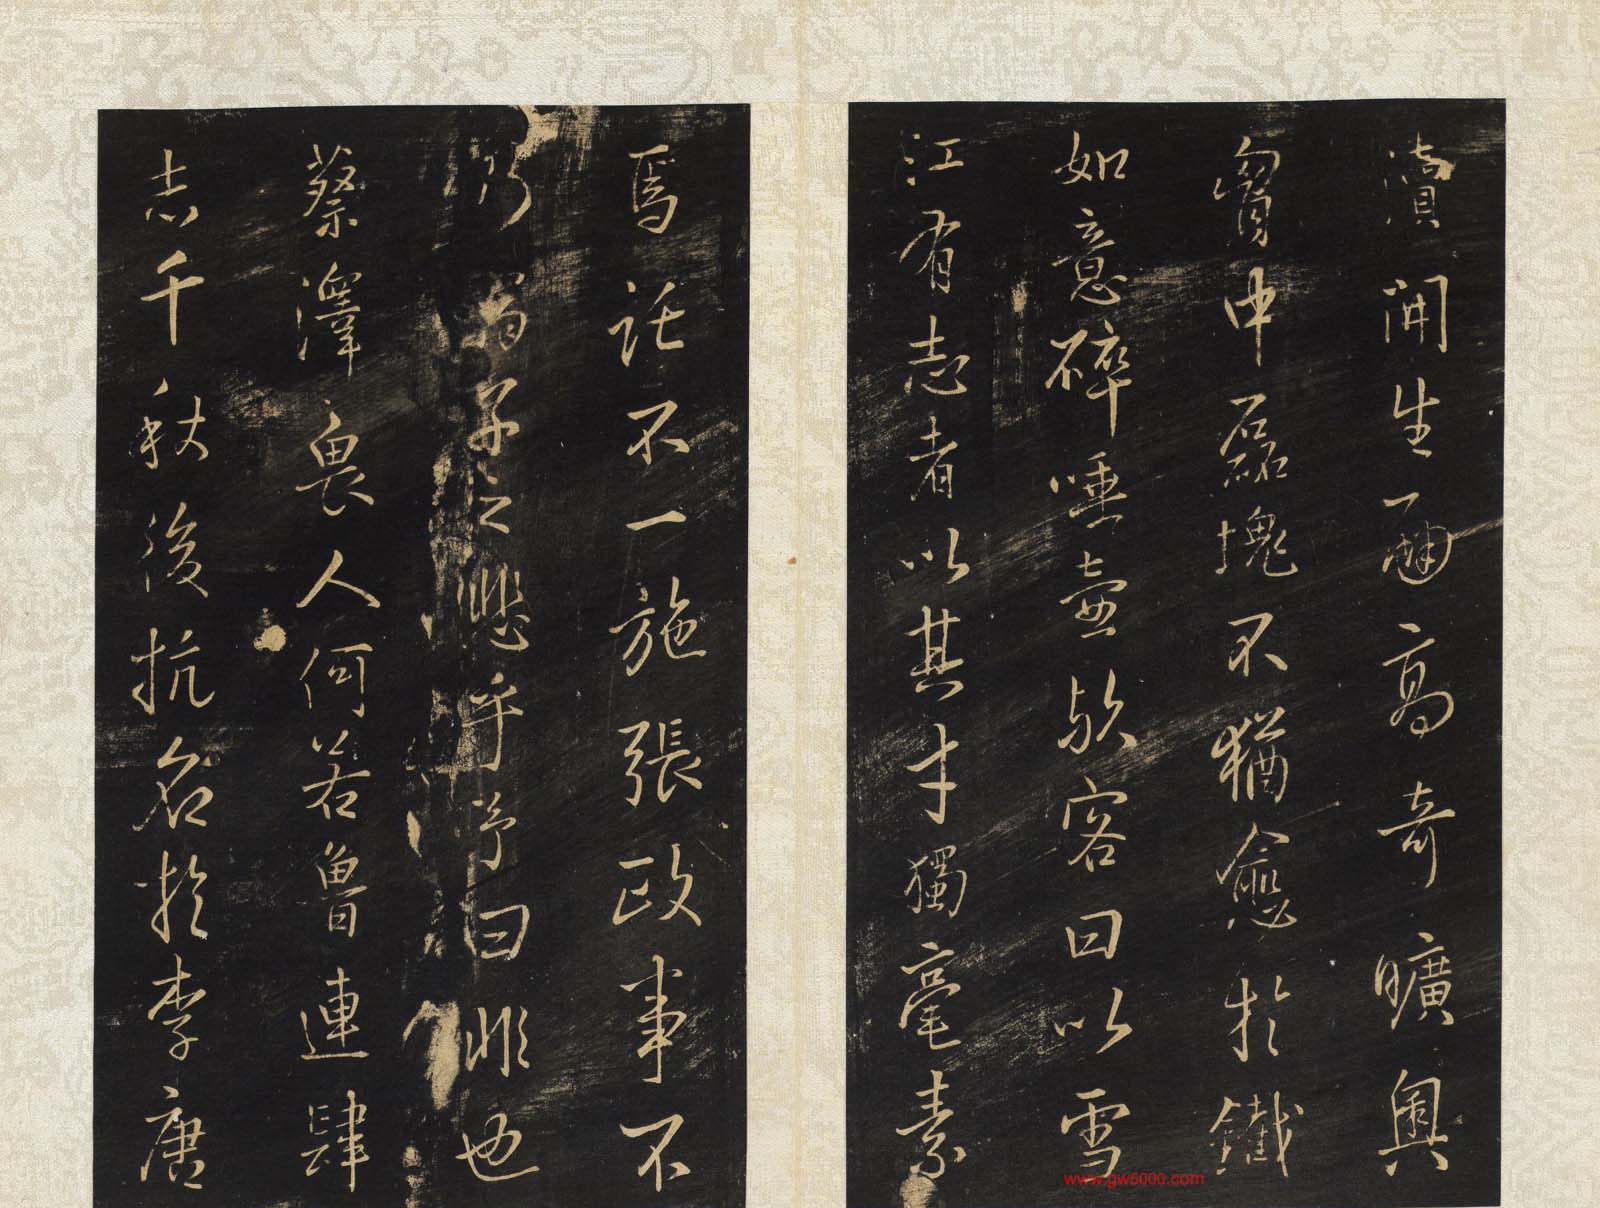 濆開生面高奇曠奧
胷中磊塊不猶愈於鐵
如意碎唾壺歟客曰以雪
江有志者以其才獨毫素
焉託不一施張政事不
乃翁子之悲乎予曰非也
蔡澤畏人何若魯連肆
志千秋後抗名於李唐
www.gw6000.com